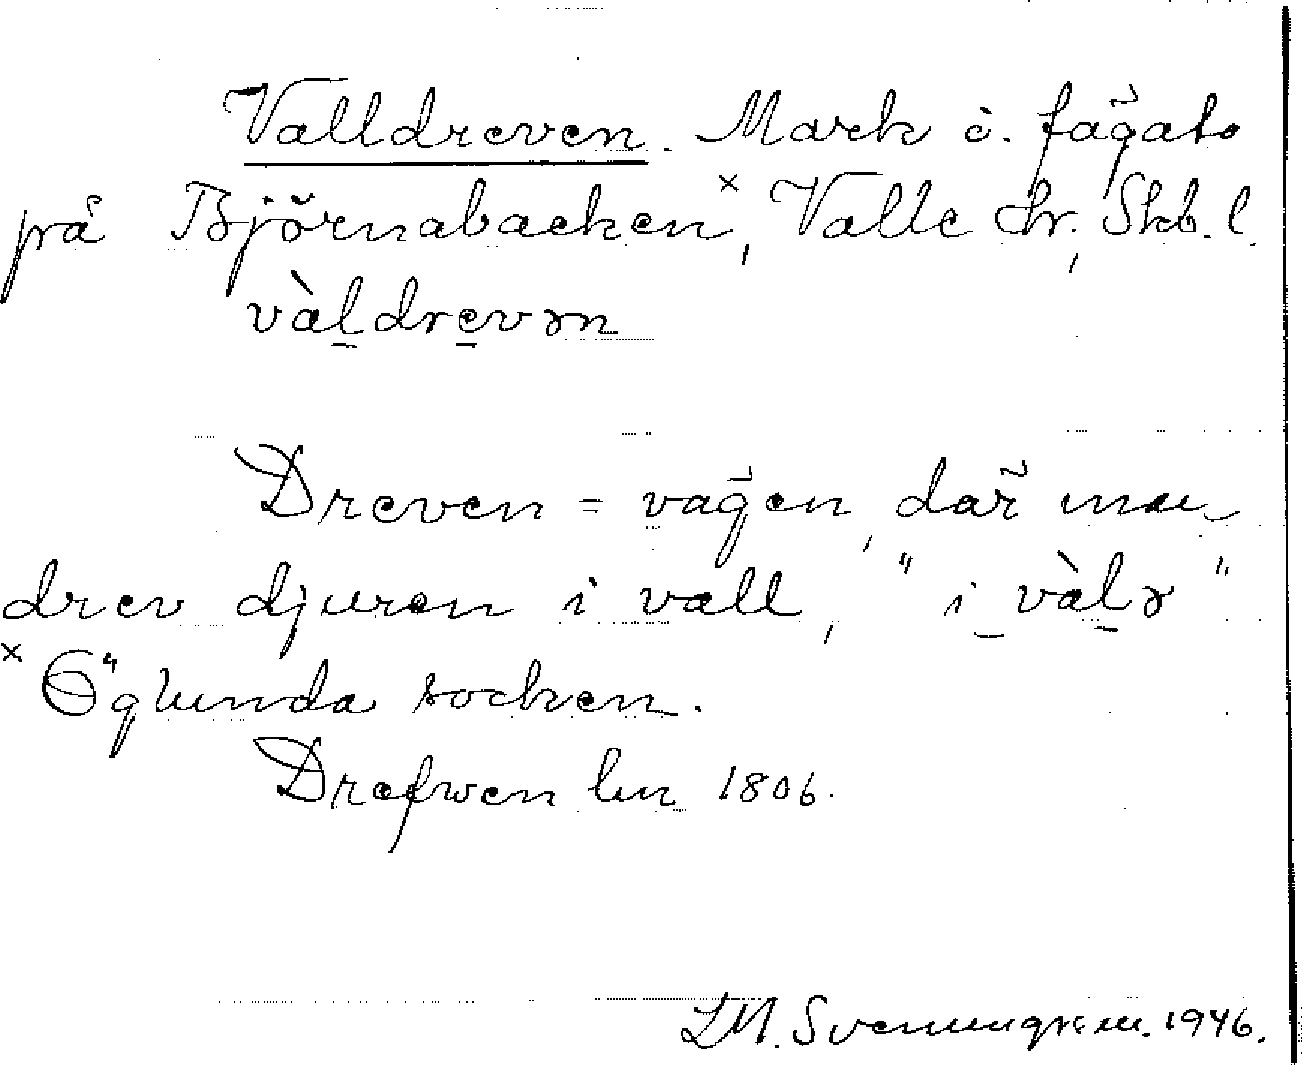 Valldreven. Mark o. fägata
på Björnabacken,× Valle hr, Skb. l.
vàl̲dre̲vɘn
Dreven = vägen, där man
drev djuren i vall, "i̲ vàl̲ɘ"
× Öglunda socken.
Drefwen lm 1806.
LM. Svenungsson. 1946.